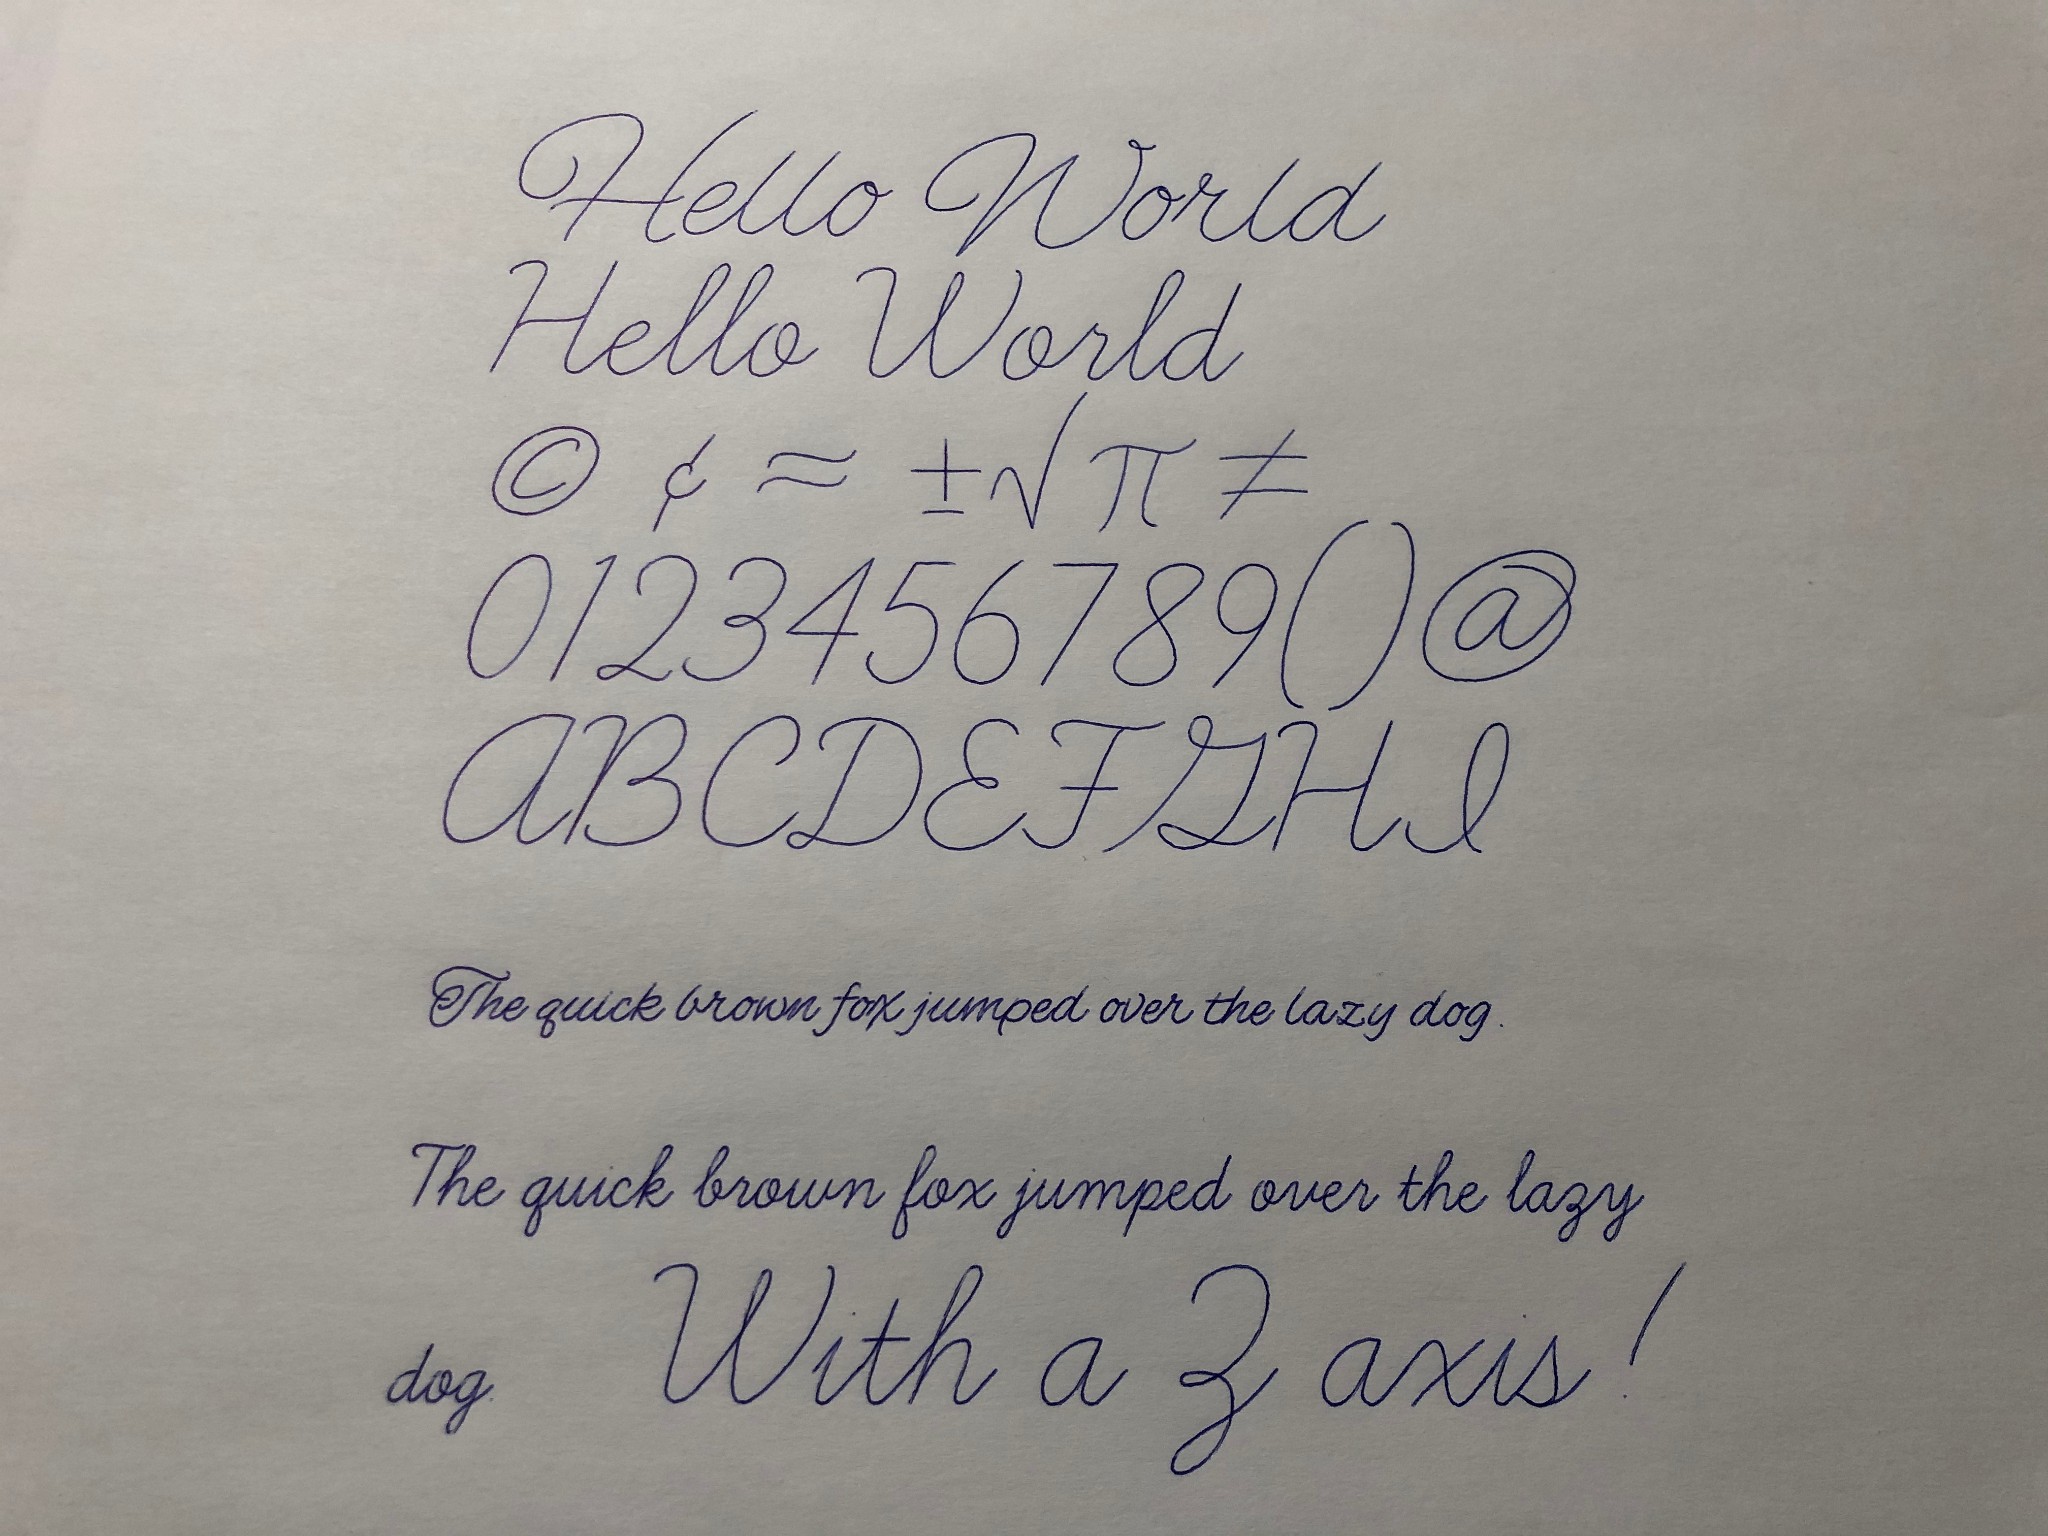 Hello World
Hello World
© ¢ ≈ ±√ π ≠
0123456789()@
ABCDEFGHI
The quick brown fox jumped over the lazy dog.
The quick brown fox jumped over the lazy
dog. With a Z axis!